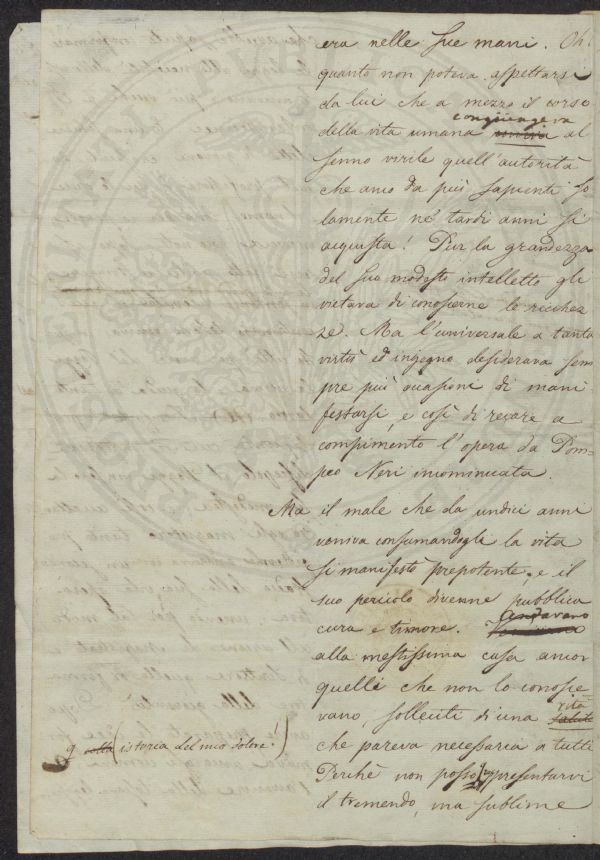 era nelle sue mani. Oh!
quanto non poteva aspettarsi
da lui che a mezzo il corso
congiungeva
della vita umana univa al
senno virile quell'autorità
che anco da più sapienti so
lamente ne' tardi anni si
acquista! Pur la grandezza
del suo modesto intelletto gli
vietava di conoscerne le ricchez
ze. Ma l'universale a tanta
virtù ed ingegno desiderava sem
pre più occasioni di mani
festarsi, e così di recare a
compimento l'opera da Pom=
peo Neri incominciata.
Ma il male che da undici anni
veniva consumandogli la vita
si manifestò prepotente, e il
suo pericolo divenne pubblica
cura e timore. Andavano
alla mestissima casa ancor
quelli che non lo conosce
vita
vano, solleciti di una salute
che pareva necessaria a tutti
Perchè non posso rappresentarvi
(istoria del mio dolore!)
il tremendo, ma sublime